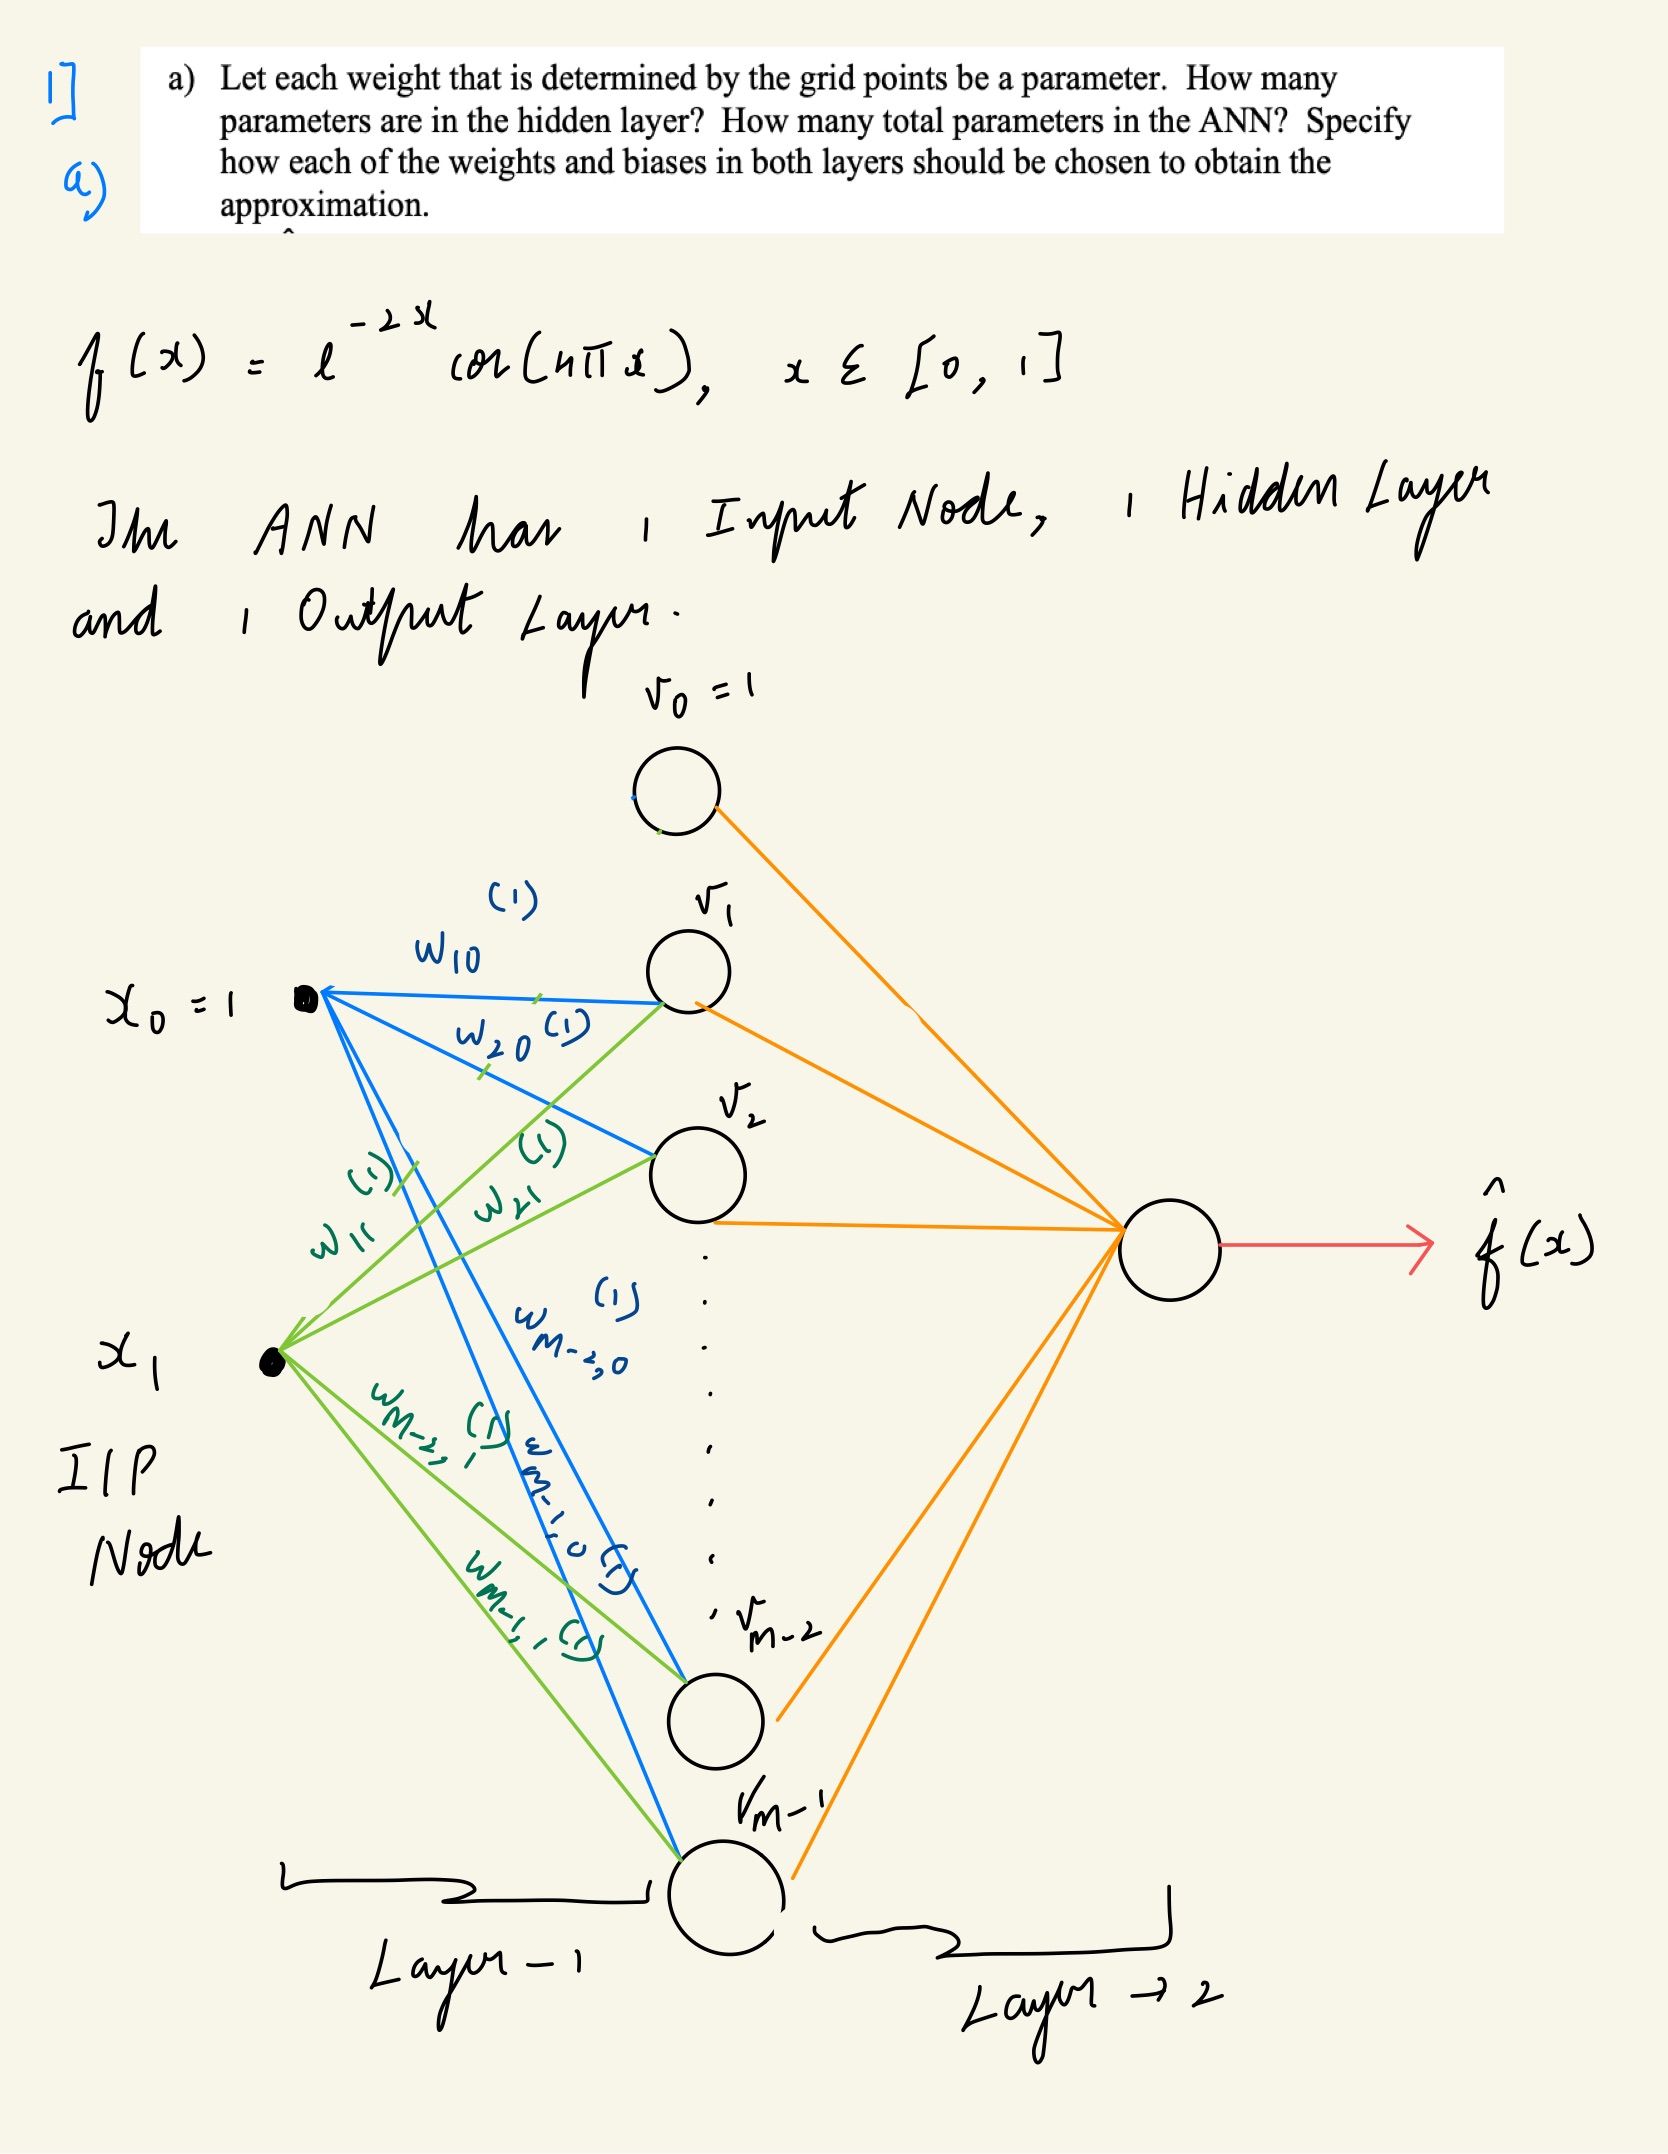 1]
a)
a) Let each weight that is determined by the grid points be a parameter. How many
parameters are in the hidden layer? How many total parameters in the ANN? Specify
how each of the weights and biases in both layers should be chosen to obtain the
approximation.
f(x) = e^{-2x} cos(4πx), x ε [0, 1]
The ANN has 1 Input Node, 1 Hidden Layer
and 1 Output Layer.
v_0 = 1
v_1
w_{10}^{(1)}
x_0 = 1
w_{20}^{(1)}
v_2
w_{11}^{(1)}
w_{21}^{(1)}
f̂(x)
w_{M-2,0}^{(1)}
x_1
w_{M-2,1}^{(1)}
w_{M-1,0}^{(1)}
I/P
Node
w_{M-1,1}^{(1)}
v_{M-2}
v_{M-1}
Layer - 1
Layer → 2